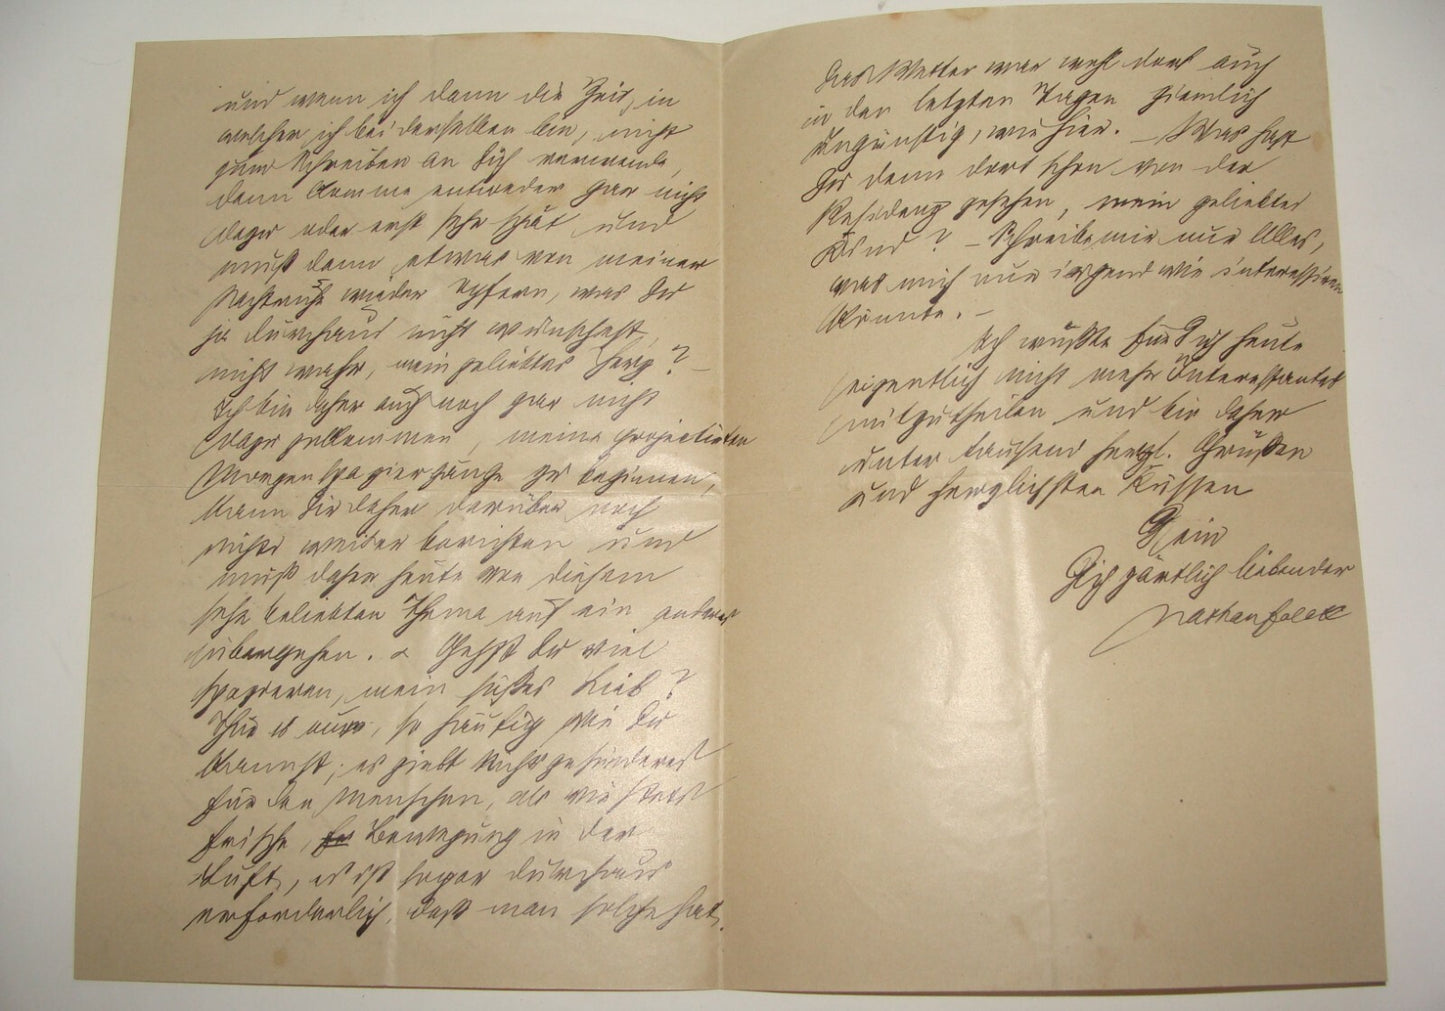 und wenn ich dann die Zeit, in
welcher ich bei derselben bin, nicht
zum Schreiben an Dich verwende,
dann komme entweder gar nicht
dazu oder erst sehr spät und
muß dann etwas von meiner
Nachtruhe wieder opfern, was Du
ja durchaus nicht wünschest,
nicht wahr, mein geliebtes Herz? –
Ich bin daher auch noch gar nicht
dazu gekommen, meine projectirten
Morgenspaziergänge zu beginnen,
kann Dir daher darüber noch
nichts weiter berichten und
muß daher heute von diesem
sehr beliebten Thema auf ein anderes
übergehen. – Gehst Du viel
spazieren, mein süßes Lieb?
Thue es nur, so häufig wie Du
kannst; es giebt nichts gesünderes
für den Menschen, als wie stets
frische, Bewegung in der
Luft, es ist sogar durchaus
erforderlich, daß man solche hat.
Das Wetter war wohl dort auch
in den letzten Tagen ziemlich
ungünstig, wie hier. – Was hast
Du denn dort schon von der
Residenz gesehen, mein geliebtes
Kind? – Schreibe mir nur Alles,
was mich nur irgendwie interessiren
könnte. –
Ich wüßte für Dich heute
eigentlich nicht mehr Interessantes
mitzutheilen und bin daher
unter tausend herzl. Grüßen
und herzlichsten Küssen
Dein
Dich zärtlich liebender
Nathan